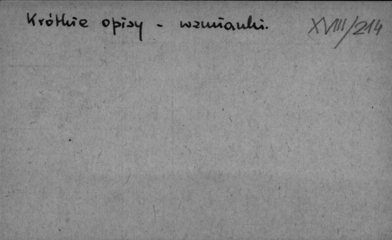 Krótkie opisy - wzmianki.
XVIII/214